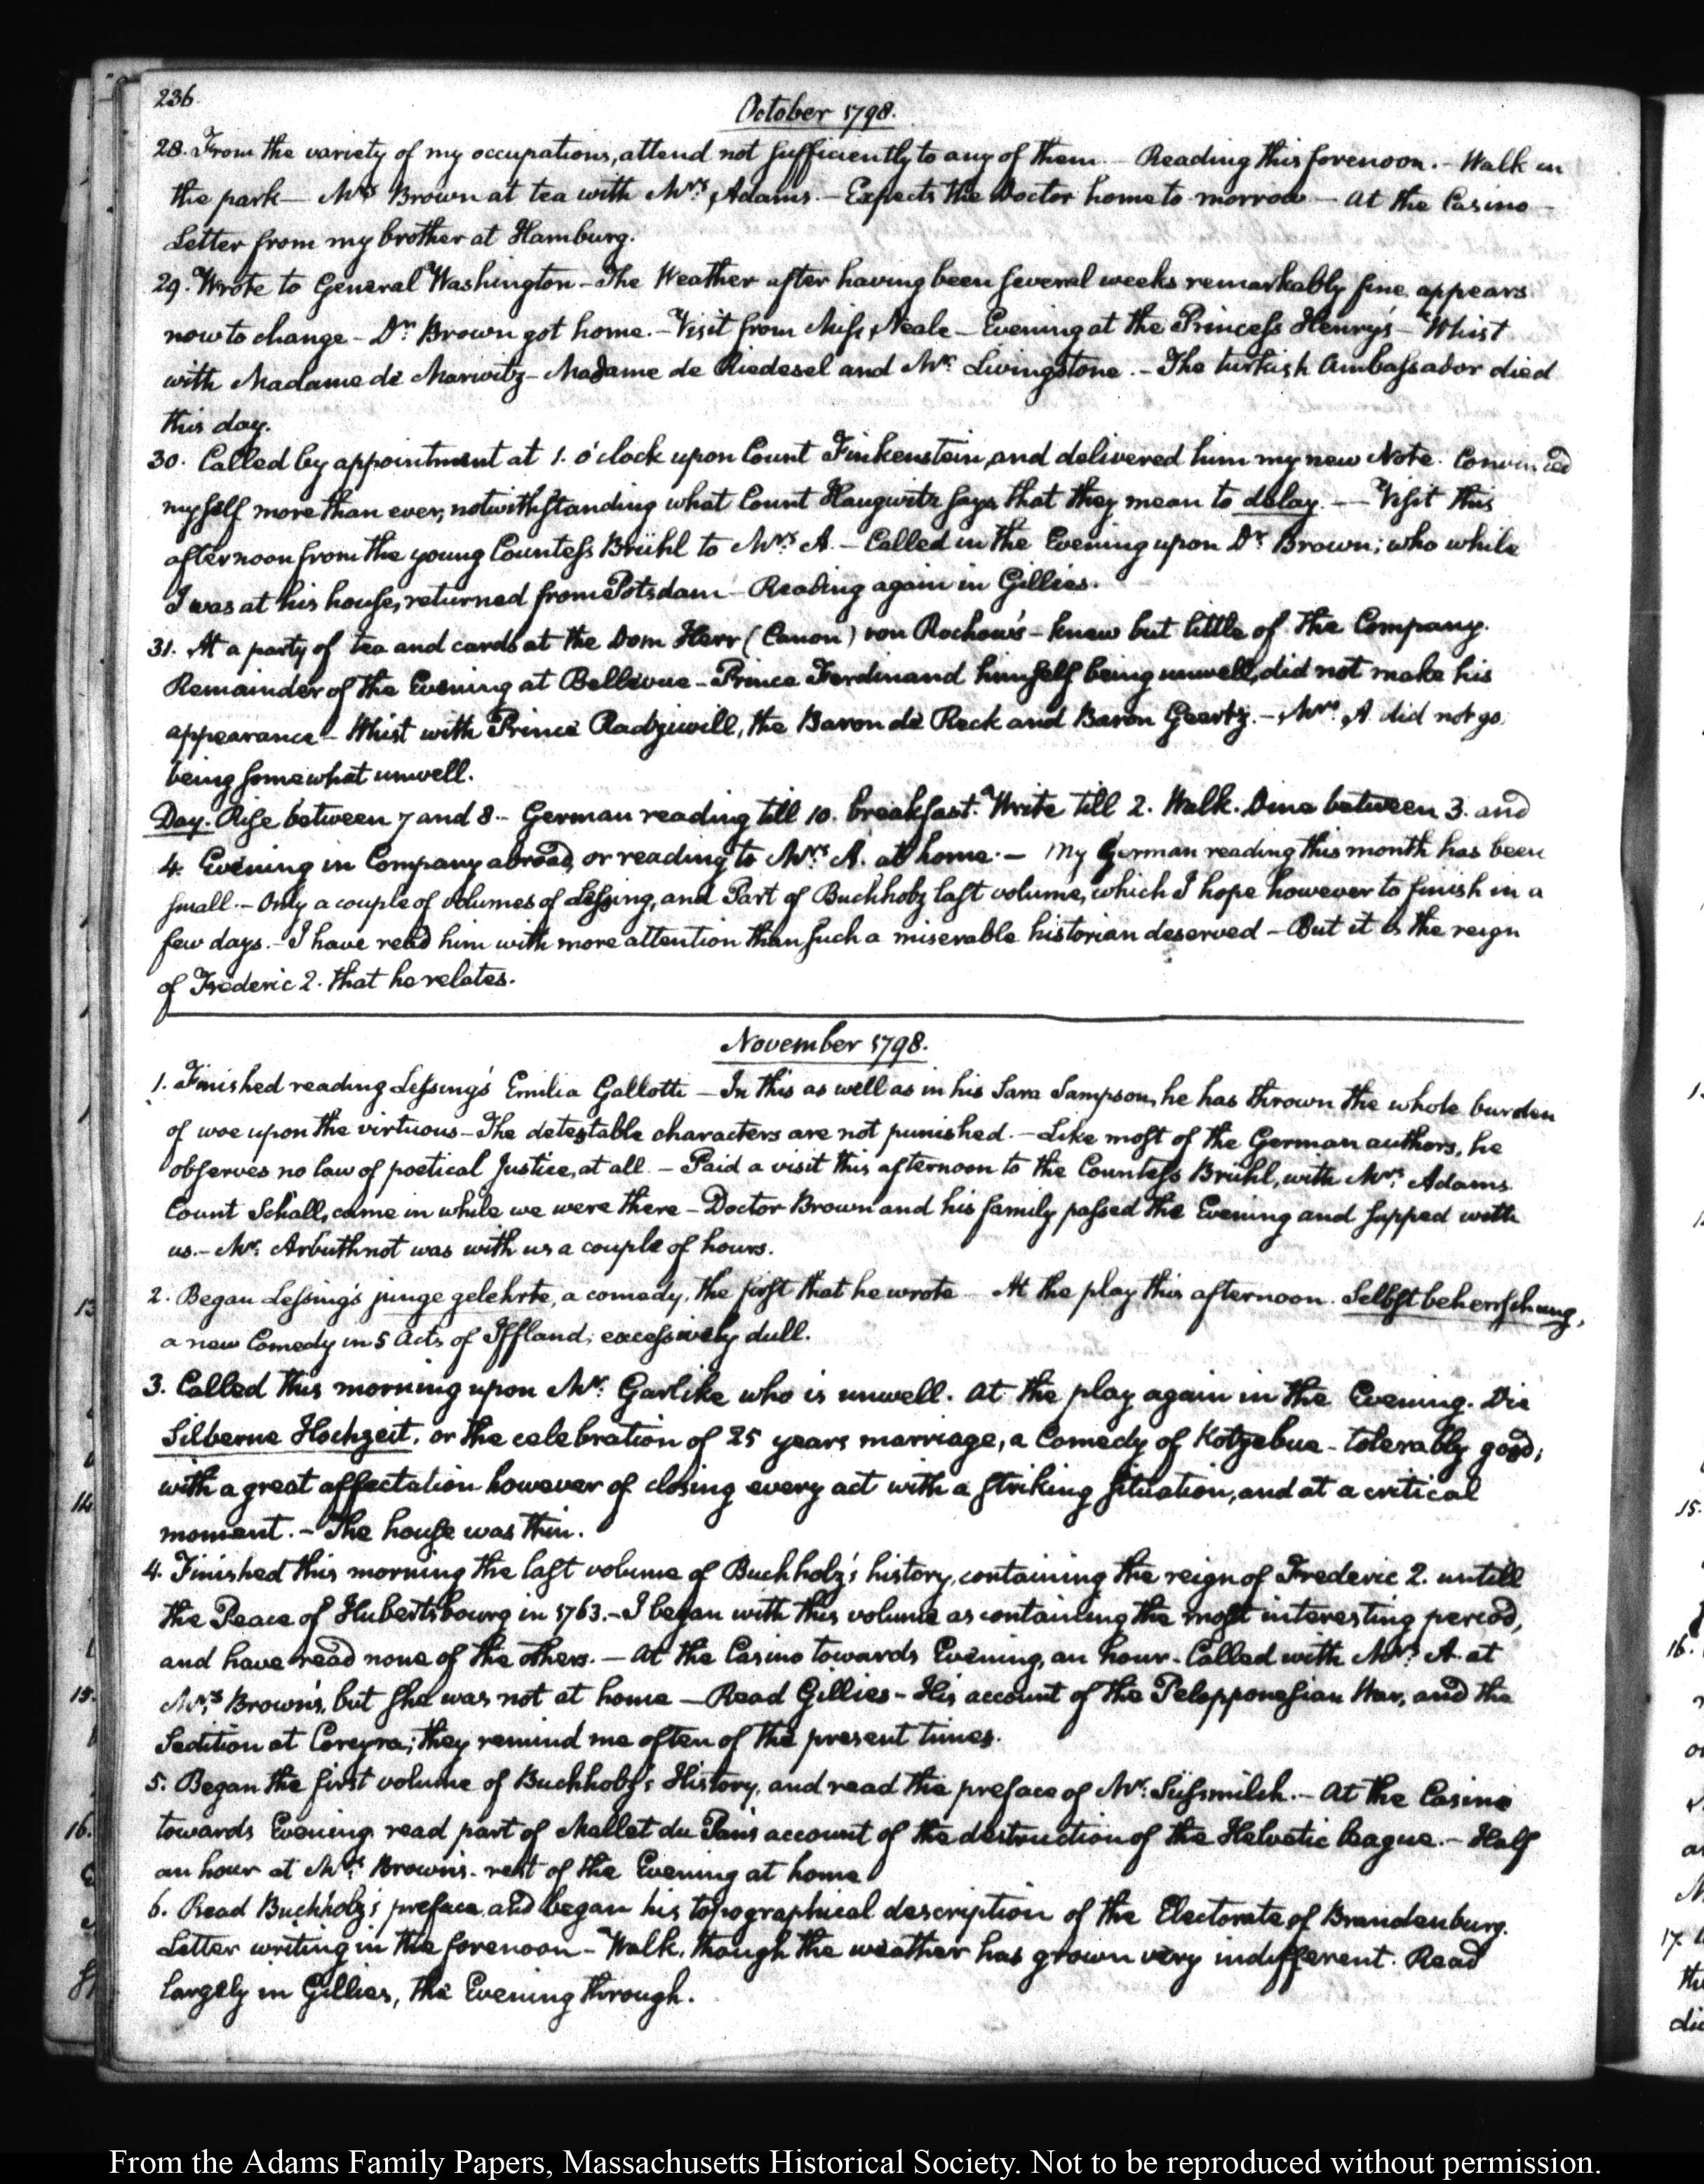 236
October 1798.
28. From the variety of my occupations, attend not sufficiently to any of them. - Reading this forenoon. - Walk in
the park - Mrs. Brown at tea with Mrs. Adams. - Expects the Doctor home to morrow - At the Casino -
Letter from my brother at Hamburg.
29. Wrote to General Washington - The Weather after having been several weeks remarkably fine, appears
now to change - Dr. Brown got home. - Visit from Miss Neale - Evening at the Princess Henry's - Whist
with Madame de Marwitz - Madame de Riedesel and Mr. Livingstone. - The turkish Ambassador died
this day.
30. Called by appointment at 1. o'clock upon Count Finkenstein, and delivered him my new Note. Convinced
myself more than ever, notwithstanding what Count Haugwitz says, that they mean to delay. - Visit this
afternoon from the young Countess Brühl to Mrs. A. - Called in the Evening upon Dr. Brown; who while
I was at his house, returned from Potsdam - Reading again in Gillies.
31. At a party of tea and cards at the Dom Herr (Canon) von Rochow's - knew but little of the Company.
Remainder of the Evening at Bellevue - Prince Ferdinand himself being unwell, did not make his
appearance - Whist with Prince Radziwill, the Baron de Reck and Baron Geertz. - Mrs. A did not go
being somewhat unwell.
Day. Rise between 7 and 8 - German reading till 10. breakfast. Write till 2. Walk. Dine between 3. and
4. Evening in Company abroad, or reading to Mrs. A. at home. - My German reading this month has been
small. - Only a couple of volumes of Lessing, and Part of Buchholz last volume, which I hope however to finish in a
few days. - I have read him with more attention than such a miserable historian deserved - But it is the reign
of Frederic 2. that he relates.
November 1798.
1. Finished reading Lessing's Emilia Gallotti - In this as well as in his Sara Sampson, he has thrown the whole burden
of woe upon the virtuous - The detestable characters are not punished. - Like most of the German authors, he
observes no law of poetical Justice, at all. - Paid a visit this afternoon to the Countess Brühl, with Mrs. Adams
Count Schall, came in while we were there - Doctor Brown and his family passed the Evening and supped with
us. - Mr. Arbuthnot was with us a couple of hours.
2. Began Lessing's junge gelehrte, a comedy, the first that he wrote - At the play this afternoon. Selbstbeherrschung,
a new Comedy in 5 Acts of Iffland; excessively dull.
3. Called this morning upon Mr. Garlike who is unwell. At the play again in the Evening. Die
Silberne Hochzeit, or the celebration of 25 years marriage, a Comedy of Kotzebue - tolerably good;
with a great affectation however of closing every act with a striking situation, and at a critical
moment. - The house was thin.
4. Finished this morning the last volume of Buchholz's history, containing the reign of Frederic 2. untill
the Peace of Hubertsbourg in 1763. - I began with this volume as containing the most interesting period,
and have read none of the others. - At the Casino towards Evening, an hour - Called with Mrs. A. at
Mrs. Brown's, but she was not at home - Read Gillies - His account of the Pelopponesian War, and the
Sedition at Corcyra; they remind me often of the present times.
5. Began the first volume of Buchholz's History, and read the preface of Mr. Süssmilch. - At the Casino
towards Evening read part of Mallet du Pan's account of the destruction of the Helvetic league. - Half
an hour at Mrs. Brown's - rest of the Evening at home
6. Read Buchholz's preface, and began his topographical description of the Electorate of Brandenburg.
Letter writing in the forenoon - Walk, though the weather has grown very indifferent. Read
largely in Gillies, the Evening through.
From the Adams Family Papers, Massachusetts Historical Society. Not to be reproduced without permission.